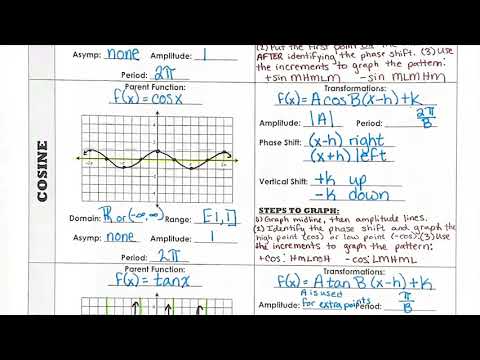 (2) Put the first point on the
AFTER identifying the phase shift. (3) Use
the increments to graph the pattern:
+sin MHMLM -sin MLMHM
Asymp: none Amplitude: 1
Period: 2π
COSINE
Parent Function:
f(x) = cosx
Domain: ℝ or (-∞,∞) Range: [-1,1]
Asymp: none Amplitude: 1
Period: 2π
Transformations:
f(x) = A cos B(x-h)+K
Amplitude: |A| Period: 2π/B
Phase Shift: (x-h) right
(x+h) left
Vertical Shift: +K up
-K down
STEPS TO GRAPH:
1) Graph midline, then amplitude lines.
(2) Identify the phase shift and graph the
high point (cos) or low point (-cos). (3) Use
the increments to graph the pattern:
+cos: HMLMH -cos: LMHML
Parent Function:
f(x) = tanx
Transformations:
f(x) = A tan B(x-h)+K
Amplitude: A is used
for extra points Period: π/B